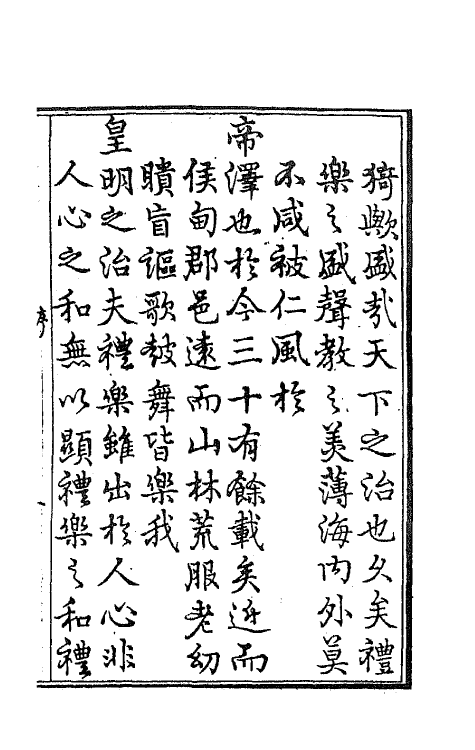 猗歟盛哉天下之治也久矣禮
樂之盛聲教之美薄海內外莫
不咸被仁風於
帝澤也於今三十有餘載矣近而
侯甸郡邑遠而山林荒服老幼
瞶盲謳歌皷舞皆樂我
皇明之治夫禮樂雖出於人心非
人心之和無以顯禮樂之和禮
序